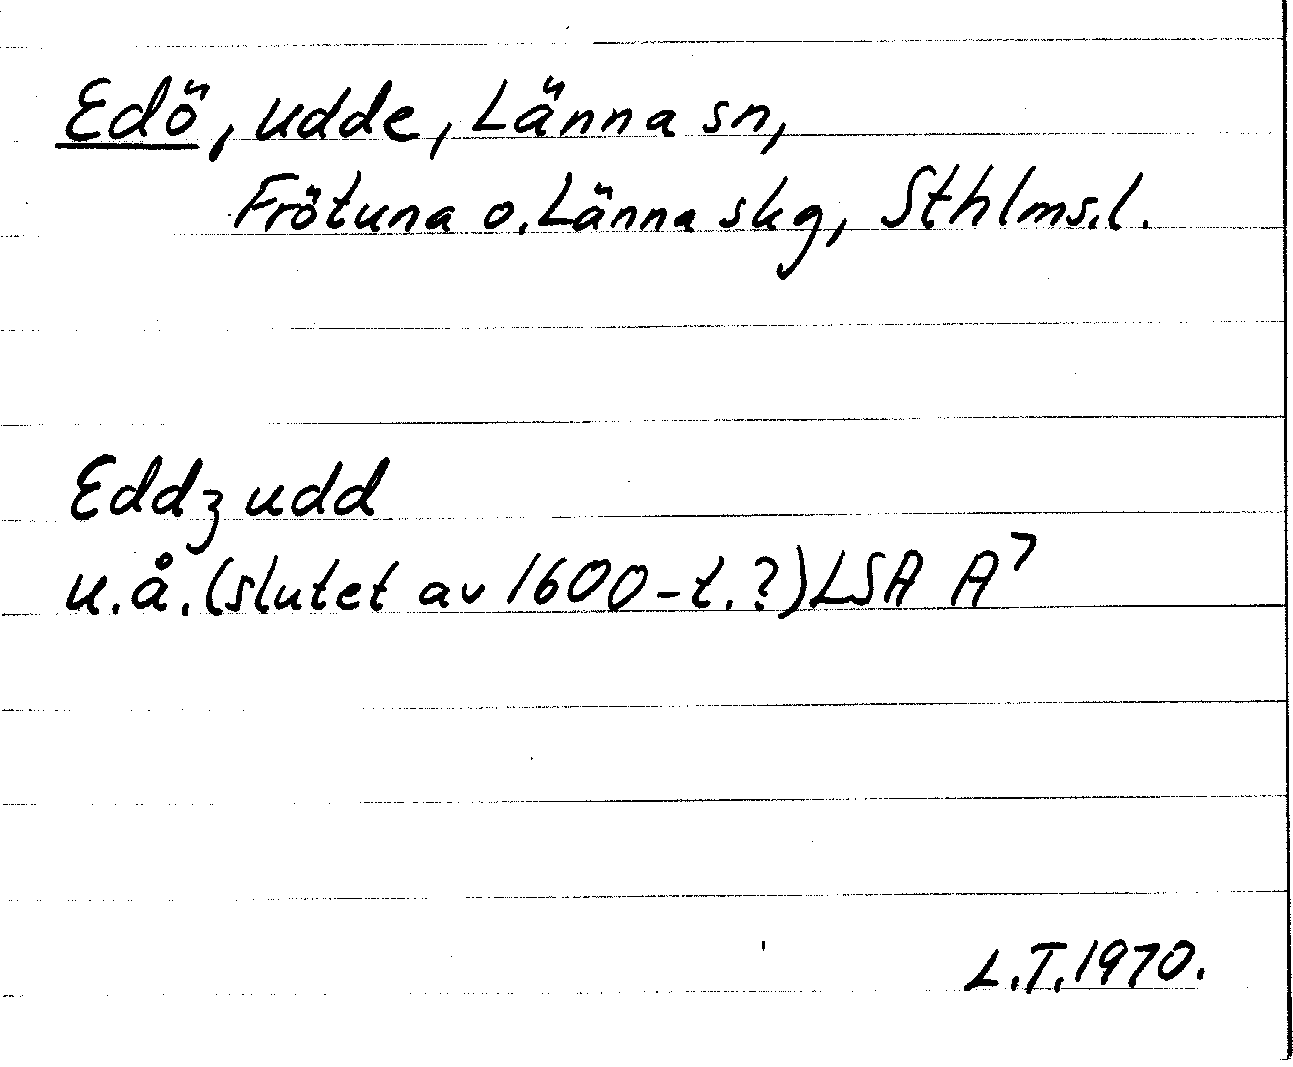 Edö, udde, Länna sn,
Frötuna o. Länna skg, Sthlms.l.
Eddȝ udd
u.å. (slutet av 1600-t.?) LSA A⁷
L.T. 1970.